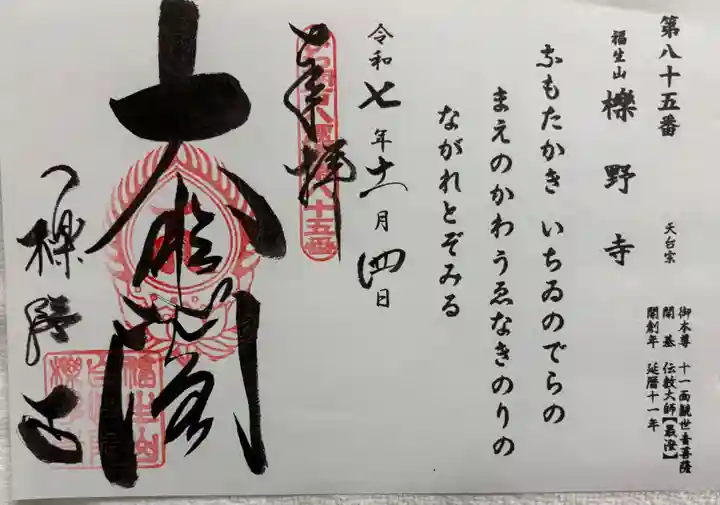 第八十五番
福生山 櫟野寺 天台宗
御本尊 十一面観世音菩薩
開基 伝教大師【最澄】
開創年 延暦十一年
なもたかき いちゐのでらの
まえのかわうゑなきのりの
ながれとぞみる
令和七年十一月四日
奉拝
八十五番
大悲閣
櫟野寺
福生山